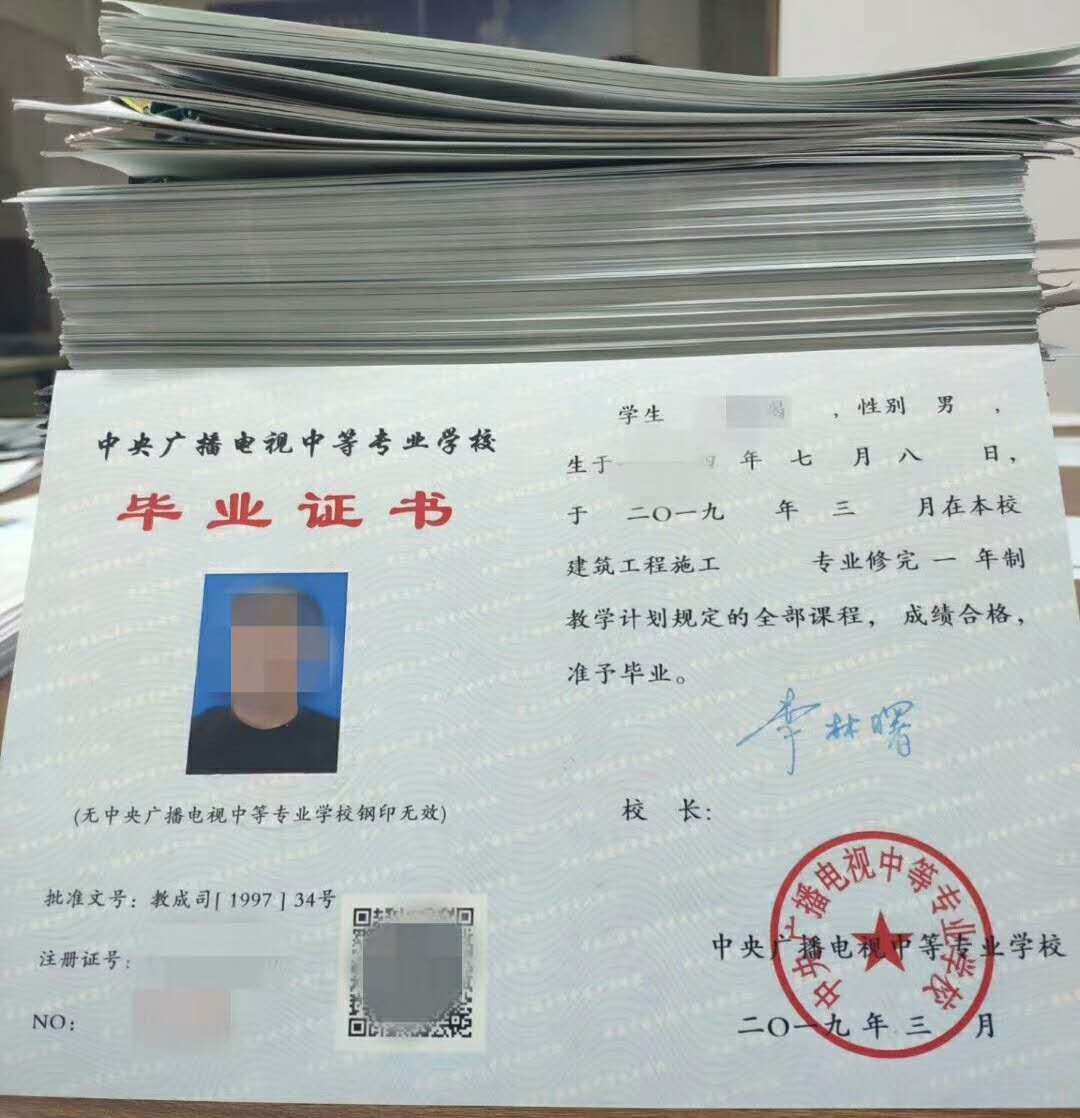 中央广播电视中等专业学校
毕业证书
(无中央广播电视中等专业学校钢印无效)
批准文号：教成司[1997]34号
注册证号：
NO：
学生 ，性别 男 ，
生于 四 年 七 月 八 日，
于 二〇一九 年 三 月在本校
建筑工程施工 专业修完 一 年制
教学计划规定的全部课程， 成绩合格，
准予毕业。
李林曙
校 长：
中央广播电视中等专业学校
中央广播电视中等专业学校
二〇一九 年 三 月